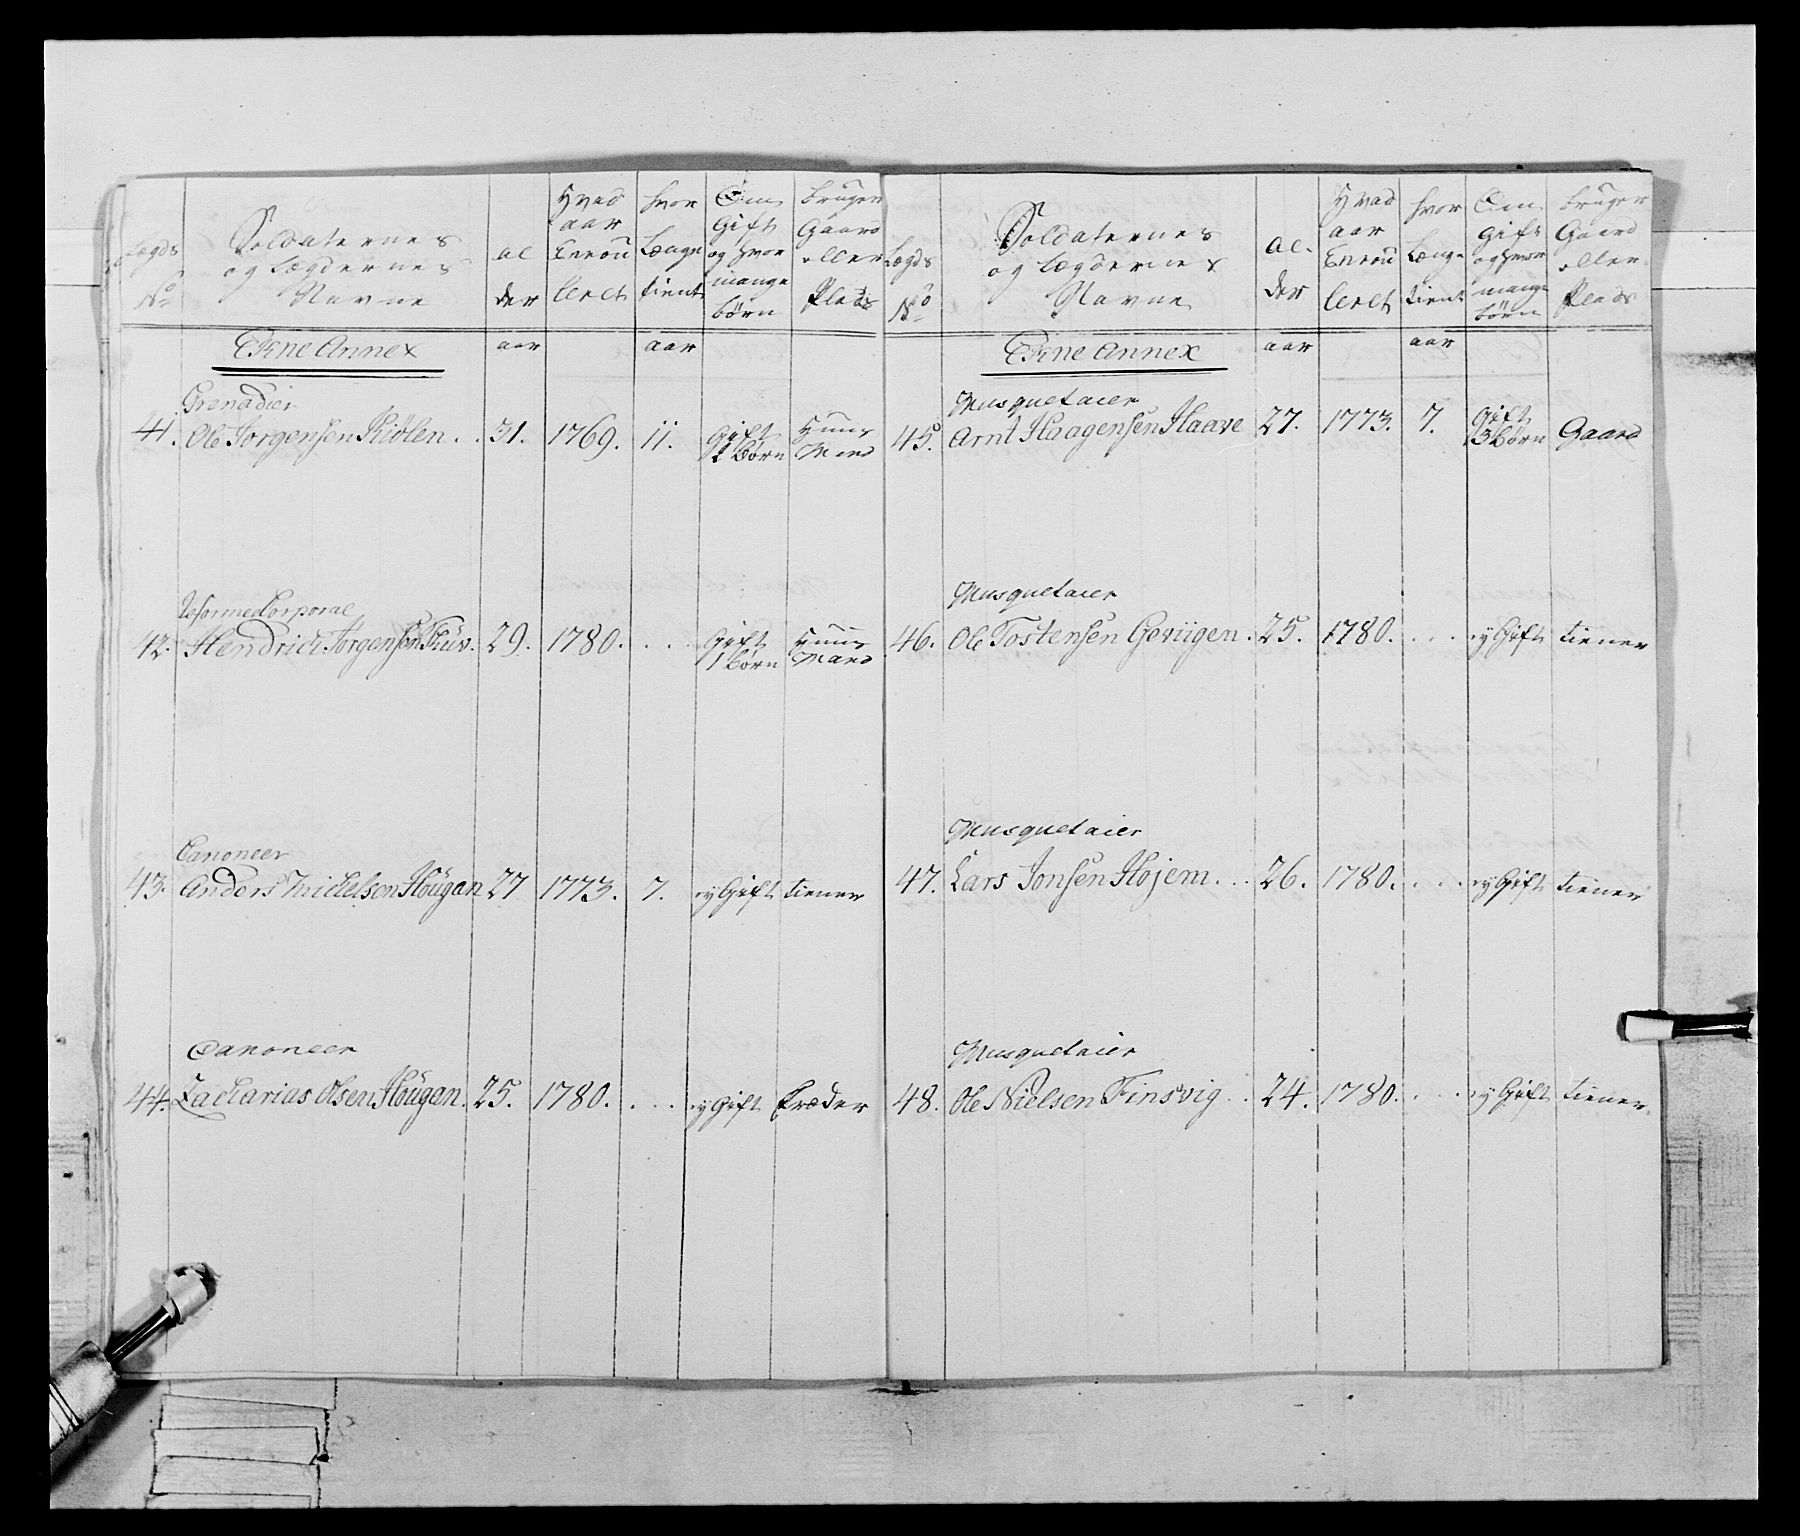 Lægds No | Soldaternes og Lægdernes Navne | al der | Hvad aar Enrou leret | hvor Længe tient | Om Gift og hvor mange børn | bruger Gaard eller Plads
Ekne Annex | aar | aar
Grenadier
41. Ole Jorgensen Kiölen . . 31. 1769. 11. Gift Huus
2 börn Mand
Reformet Corporal
42. Hendrich Jorgensen Thuv. 29. 1780. . . . Gift Huus
1 Börn Mand
Canoneer
43. Anders Michelsen Hougan 27 1773. 7. ey Gift tiener
Canoneer
44. Zacharias Olsen Hougan. 25. 1780. . . . ey Gift træder
Lægds No | Soldaternes og Lægdernes Navne | al- der | Hvad aar Enrou leret | hvor Længe tient | Om gift og hvor mange börn | bruger Gaard eller Plads
Ekne Annex | aar | aar
Musquetaier
45. Arnt Haagensen Haave 27. 1773. 7. gift
3 Börn Gaard
Musquetaier
46. Ole Tostensen Geviigen . 25. 1780. . . . ey Gift tiener
Musquetaier
47. Lars Jonsen Höjem . . . 26. 1780. . . . ey Gift tiener
Musquetaier
48. Ole Nielsen Finsvig . . 24. 1780. . . . ey Gift tiener.